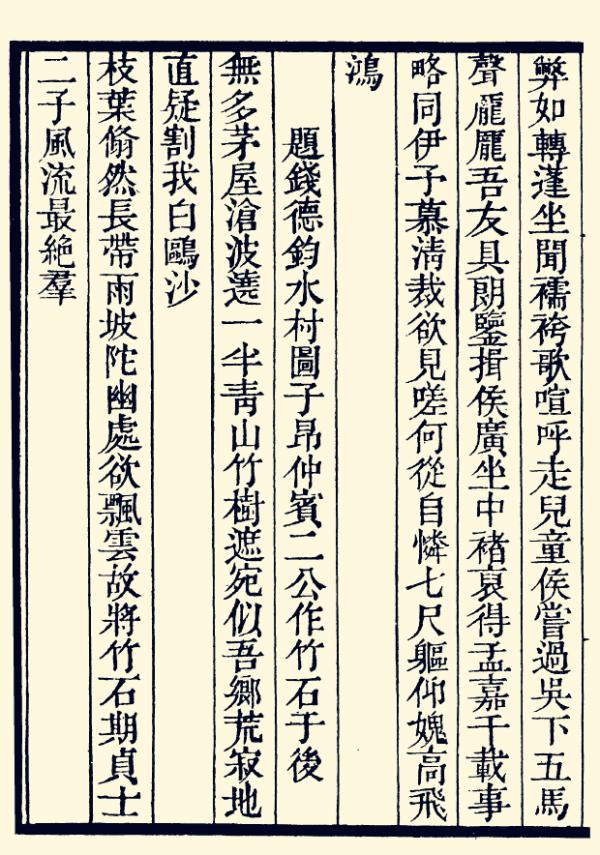 弊如轉蓬坐聞襦袴歌喧呼走兒童侯嘗過吳下五馬
聲龎龎吾友具朗鑒揖侯廣坐中褚裒得孟嘉千載事
略同伊予慕清裁欲見嗟何從自憐七尺軀仰媿高飛
鴻
題錢德鈞水村圖子昂仲賓二公作竹石于後
無多茅屋滄波遶一半青山竹樹遮宛似吾鄉荒寂地
直疑割我白鷗沙
枝葉翛然長帶雨坡陀幽處欲飄雲故將竹石期貞士
二子風流最絶羣